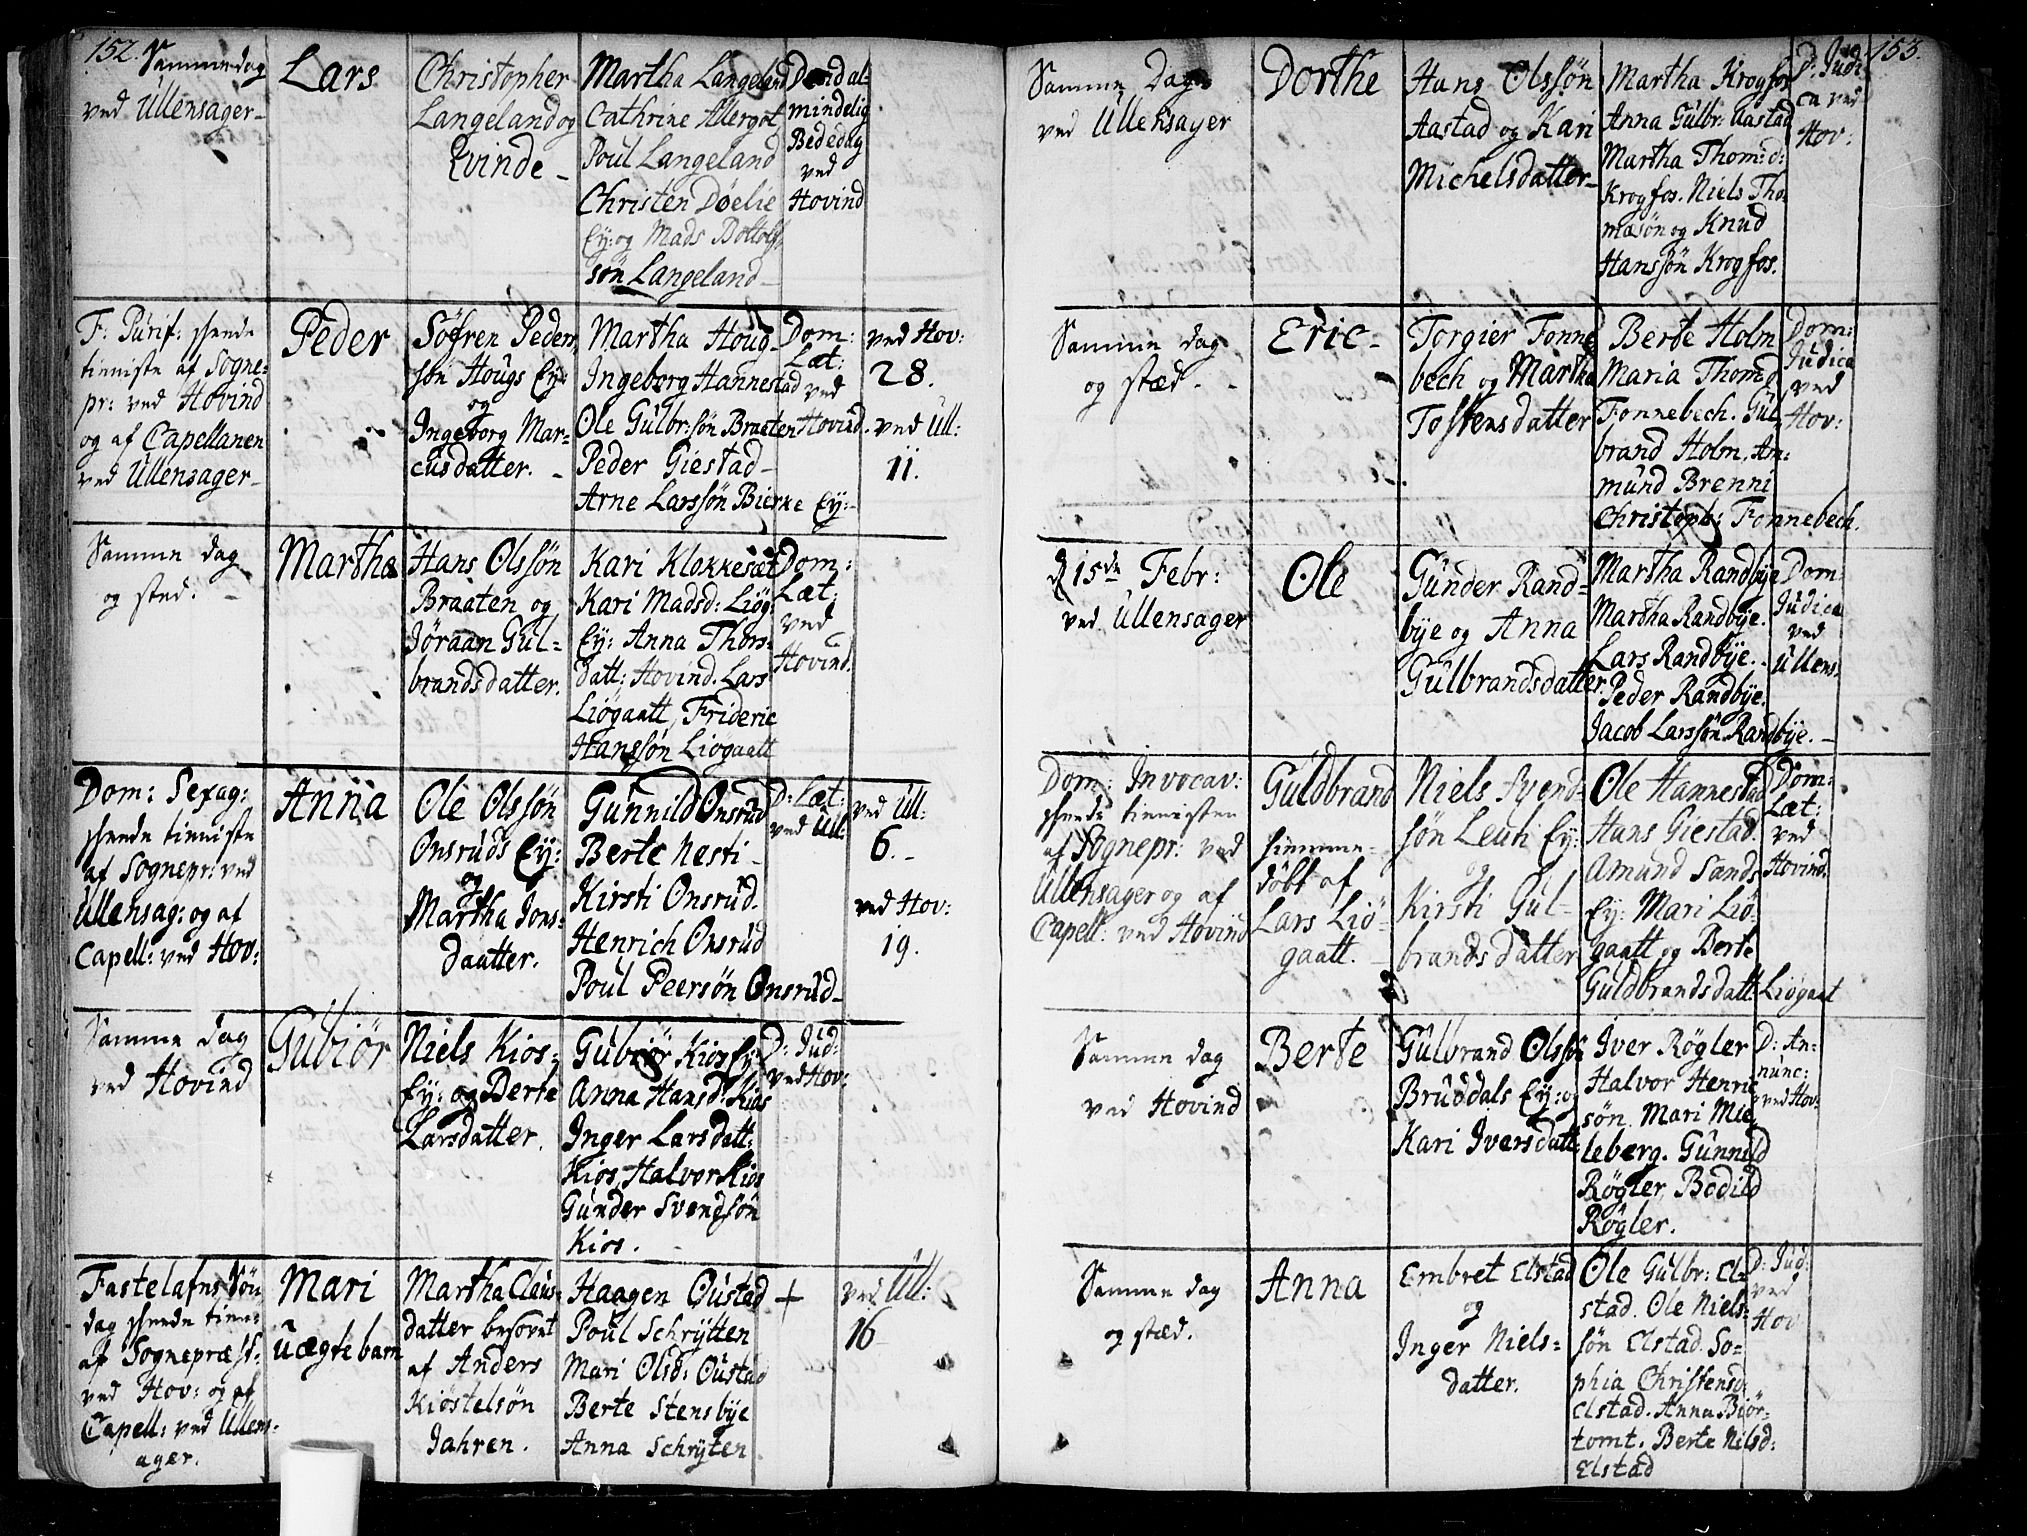 152.
Samme dag
ved Ullensager
Lars
Christopher
Langeland og
Qvinde
Martha Langeland
Cathrine Allergot
Poul Langeland
Christen Döelie
Ey: og Mads Bottolf
sön Langeland
Dend al-
mindelig
Bededag
ved
Hovind
F: Purif: skeede
tienniste af Sogne-
pr: ved Hovind
og af Capellanen
ved Ullensager
Peder
Söfren Peders
sön Hougs Ey:
og
Ingeborg Mar-
cusdatter.
Martha Houg
Ingeborg Hannestad
Ole Gulbr: sön Braaten
Peder Giestad
Arne Larssön Bierke Ey:
Dom:
Læt:
ved
Hovind.
ved Hov:
28.
ved Ull:
11.
Samme dag
og sted.
Martha
Hans Olssön
Braaten og
Jöraan Gul-
brandsdatter.
Kari Klokkesæt
Kari Madsd: Liög:
Ey: Anna Thors-
datt: Hovind. Lars
Liögaatt, Frideric
Hanssön Liögaatt
Dom:
Læt:
ved
Hovind.
Dom: Sexag:
skeede tienniste
af Sognepr: ved
Ullensag: og af
Capell: ved Hov:
Anna
Ole Olssön
Onsruds Ey:
og
Martha Jons-
daatter.
Gunnild Onsrud
Berte Nesti
Kirsti Onsrud.
Henrich Onsrud
Poul Peersön Onsrud
D: Læt:
ved Ull:
ved Ull:
6.
ved Hov:
19.
Samme dag
ved Hovind
Gubiör
Niels Kios-
Ey: og Berte
Larsdatter.
Gubiör Kios Ey:
Anna Hansd: Kios
Inger Larsdatt:
Kios, Halvor Kios
Gunder Svendsön
Kios.
D: Jud:
ved Hov:
Fastelafns Sön-
dag skeede tien:
af Sognepræst:
ved Hov: og af
Capell: ved Ullens-
ager.
Mari
uægte barn
Martha Claus-
datter besovet
af Anders
Kiöstelsön
Jahren.
Haagen Oustad
Poul Schrÿtten
Mari Olsd: Oustad
Berte Stensbÿe
Anna Schrÿten
+
ved Ull:
16
153.
Samme Dag
ved Ullensager
Dorthe
Hans Olssön
Aastad og Kari
Michelsdatter
Martha Krogfos
Anna Gulbr: Aastad
Martha Thom: d:
Krogfos. Niels Tho-
masön og Knud
Hanssön Krogfos.
D: Judi-
ca ved
Hov:
Samme dag
og stæd.
Eric
Torgier Fonne
bech og Martha
Tostensdatter
Berte Holm
Maria Thomd
Fonnebech. Gul
brand Holm, Am-
mund Brenni
Christoph: Fonnebech.
Dom:
Judica
ved
Hov:
d 15de Febr:
ved Ullensager
Ole
Gunder Rand-
bÿe og Anna
Gulbrandsdatter.
Martha Randbÿe
Martha Randbÿe.
Lars Randbÿe.
Peder Randbÿe.
Jacob Larssön Randbÿe.
Dom:
Judica
ved
Ullens.
Dom: Invocav:
skeede tiennisten
af Sognepr: ved
Ullensager og af
Capell: ved Hovind
Guldbrand
hiemme-
döbt af
Lars Liö-
gaatt.
Niels Svend-
sön Leuti Ey:
og
Kirsti Gul-
brandsdatter
Ole Hannestad
Hans Giestad.
Amund Sands
Ey: Mari Liö-
gaatt og Berte
Guldbrandsdatt: Liögaat
Dom:
Læt:
ved
Hovind.
Samme dag
ved Hovind
Berte
Gulbrand Olssön
Bruddals Ey: og
Kari Iversdatt:
Iver Rögler
Halvor Henric
sön. Mari Mie-
leberg. Gunnild
Rögler, Bodild
Rögler.
D: An-
nunc:
ved Hov:
Samme dag
og stæd.
Anna
Embret Elstad
og
Inger Niels-
datter.
Ole Gulbr: El-
stad. Ole Niels-
sön Elstad. So-
phia Christensd:
Elstad. Anna Biör-
tomt. Berte Nilsd:
Elstad
D: Jud:
ved
Hov